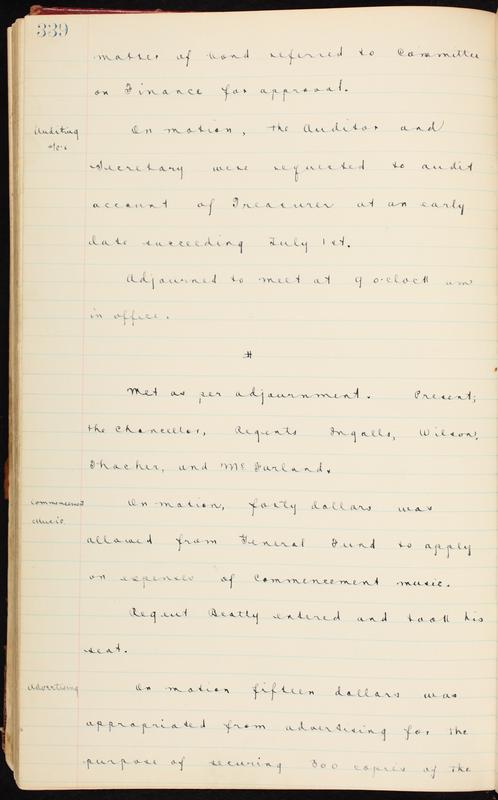 339
matter of bond referred to Committee
on Finance for approval.
Auditing
a/c's
On motion, the Auditor and
Secretary were requested to audit
account of Treasurer at an early
date succeeding July 1st.
Adjourned to meet at 9 o'clock am
in office.
#
Met as per adjournment. Present;
the Chancellor, Regents Ingalls, Wilson,
Thacher, and McFarland.
Commencement
Music.
On motion, forty dollars was
allowed from General Fund to apply
on expenses of Commencement music.
Regent Beatty entered and took his
seat.
Advertising
On motion fifteen dollars was
appropriated from advertising for the
purpose of securing 300 copies of the